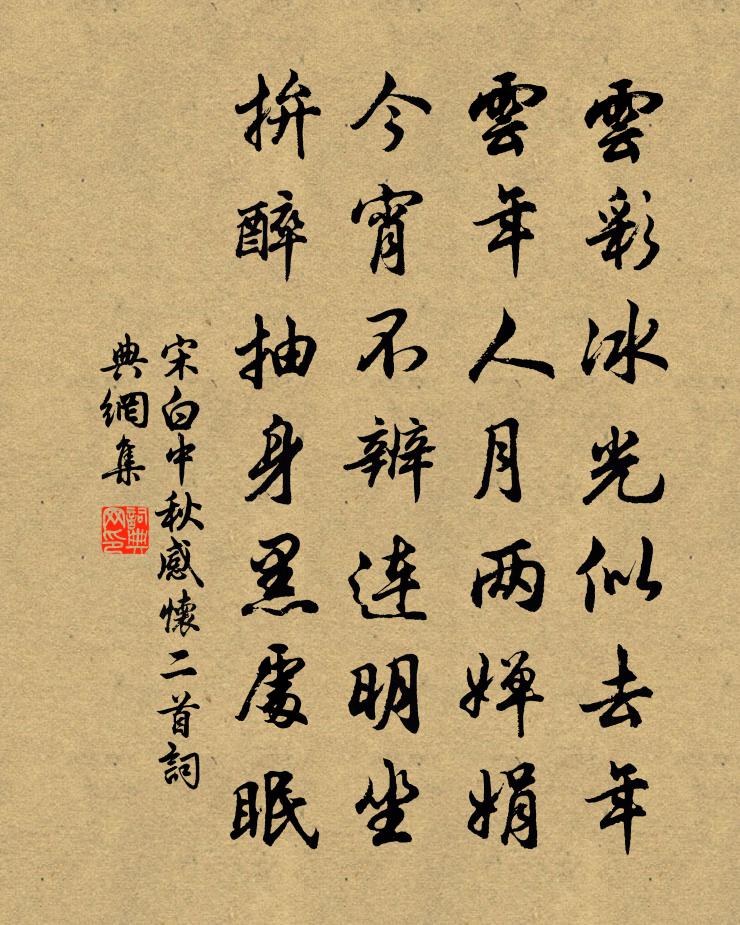 雲彩冰光似去年
雲年人月两婵娟
今宵不辨连明坐
拚醉抽身黑處眠
宋白中秋感懷二首詞
典網集
詞典网印